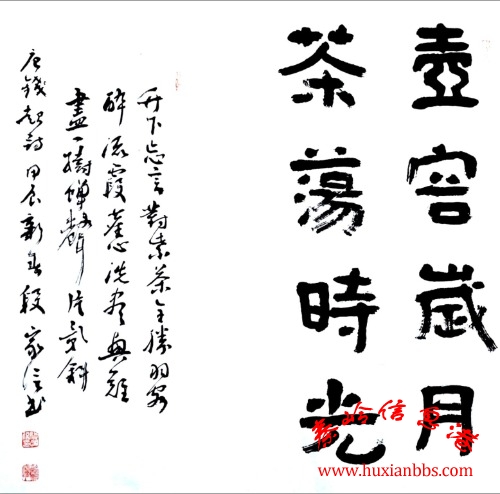 壺窖歲月
茶蕩時光
竹下忘言對紫茶全勝羽客
醉流霞塵心洗盡興難
盡一樹蟬聲片影斜
唐錢起詩甲辰新春段家信書
鄠邑信息港
www.huxianbbs.com